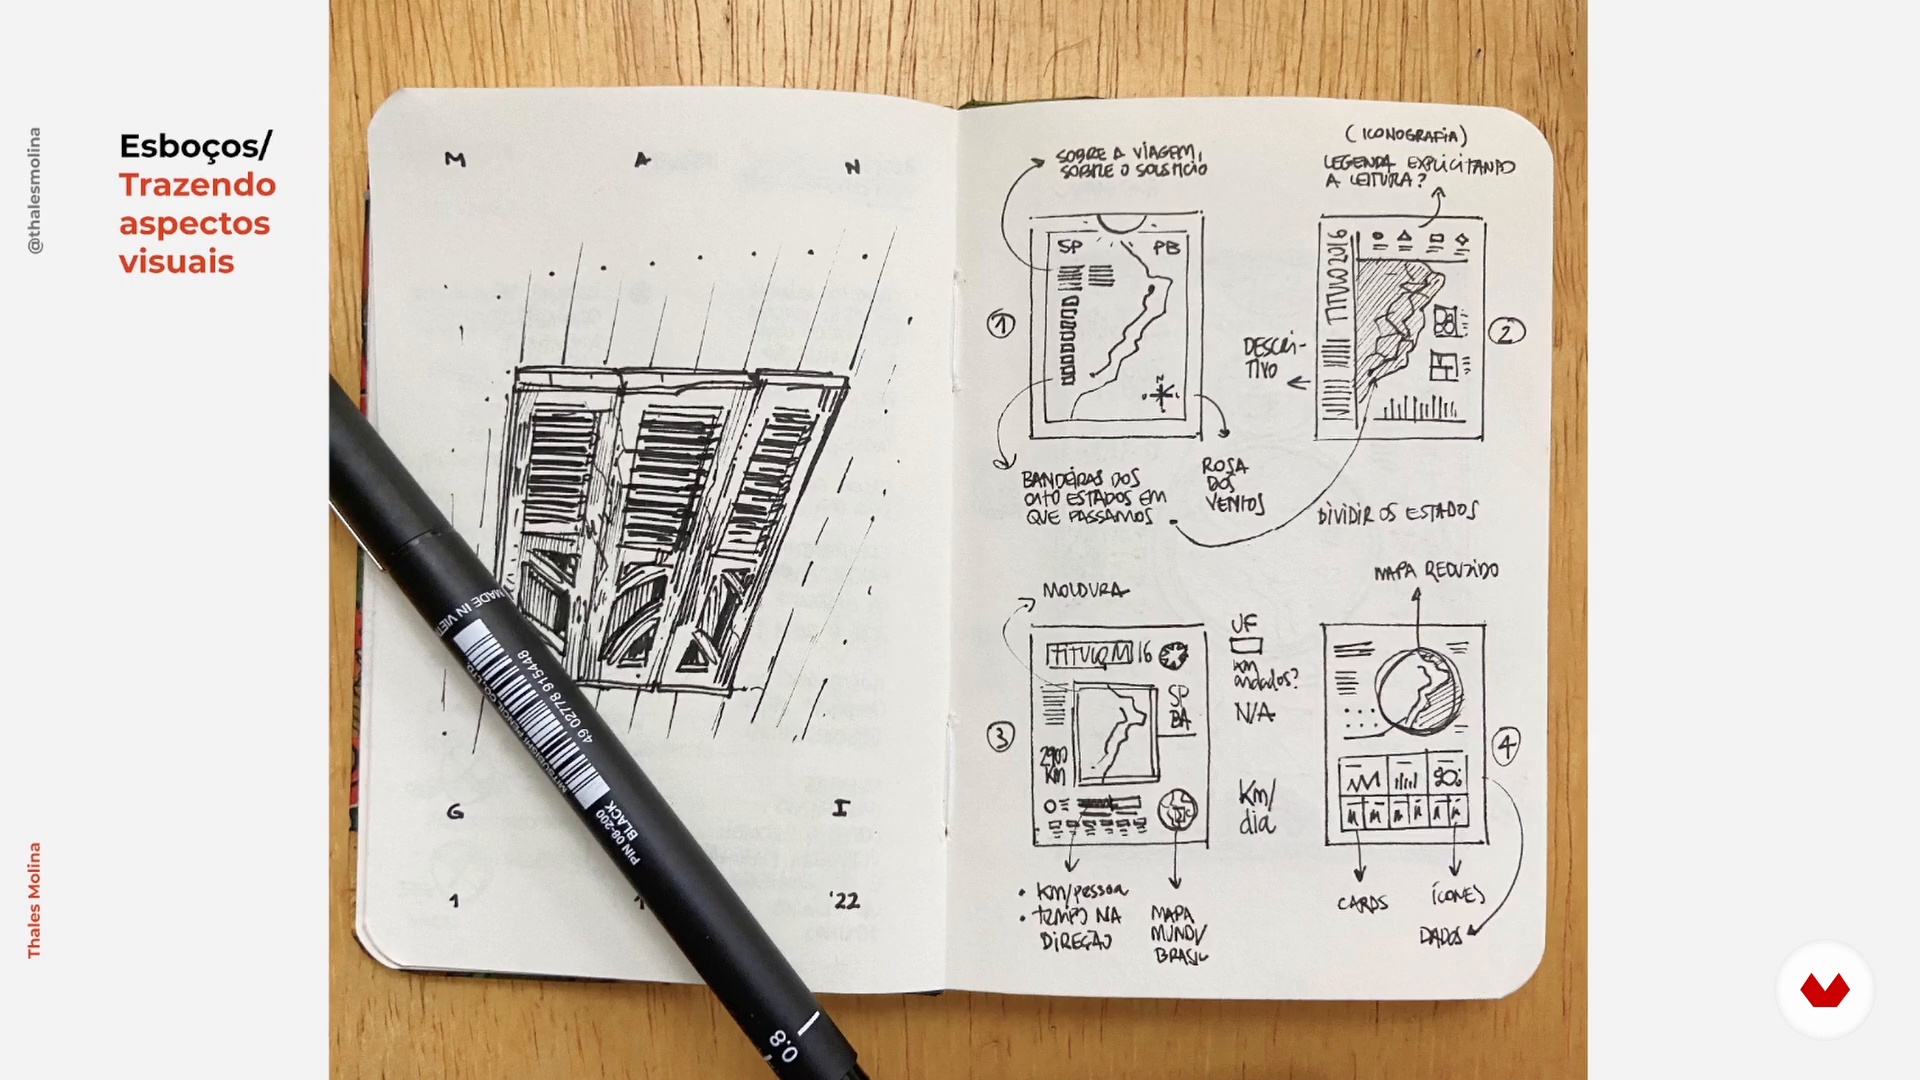 @thalesmolina
Thales Molina
Esboços/
Trazendo
aspectos
visuais
M A N
G I
1 '22
MADE IN VIET
MITSUBISHI PENCIL CO.,LTD.
49 02778 915448
PIN 08-200
BLACK
0.8
SOBRE A VIAGEM,
SOBRE O SOLSTÍCIO
SP PB
1
BANDEIRAS DOS
OITO ESTADOS EM
QUE PASSAMOS
ROSA
DOS
VENTOS
(ICONOGRAFIA)
LEGENDA EXPLICITANDO
A LEITURA?
TITULO 2016
DESCRI-
TIVO
2
DIVIDIR OS ESTADOS
MOLDURA
TITULO M 16
SP
BA
2900
KM
3
UF
KM
andados?
N/A
Km/
dia
• Km/pessoa
• TEMPO NA
DIREÇÃO
MAPA
MUNDI/
BRASIL
MAPA REDUZIDO
4
CARDS
ÍCONES
DADOS